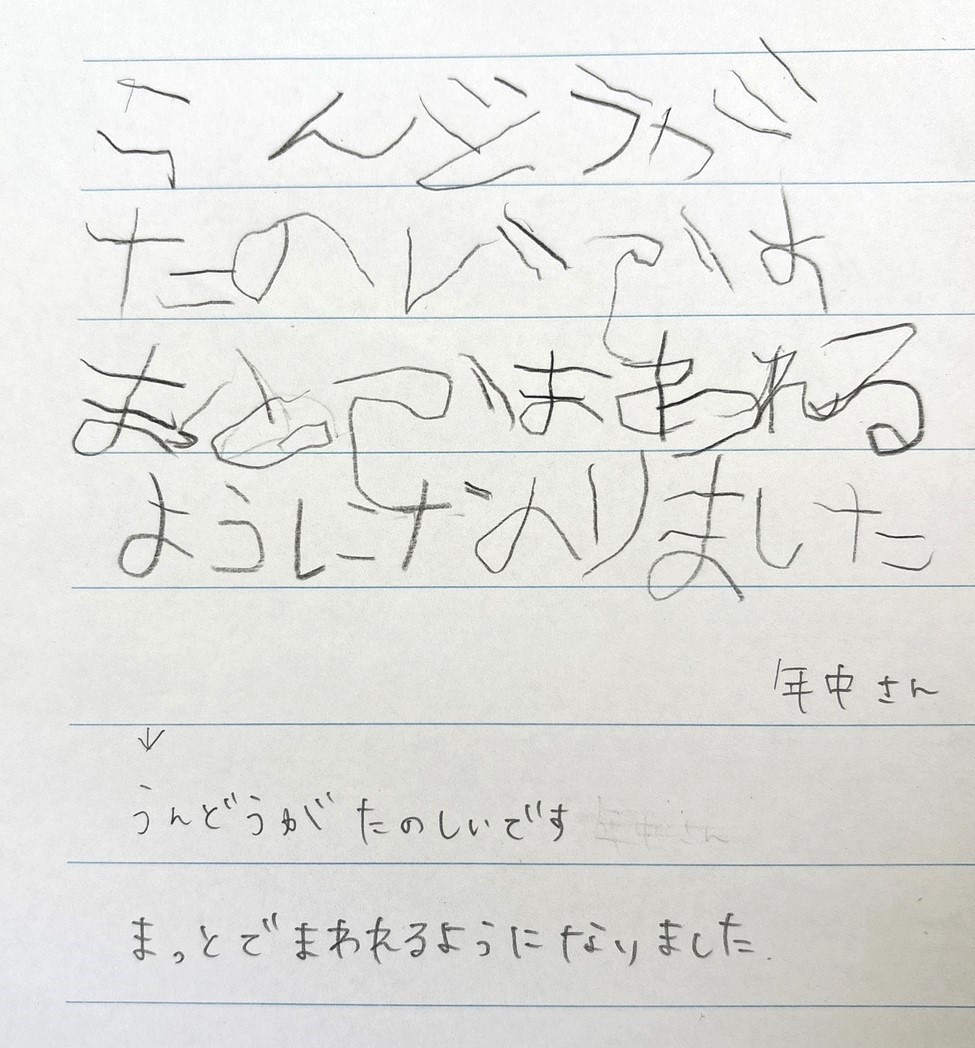 うんどうが
たのしいです
まっとでまわれる
ようになりました
年中さん
↓
うんどうがたのしいです 年中さん
まっとでまわれるようになりました.